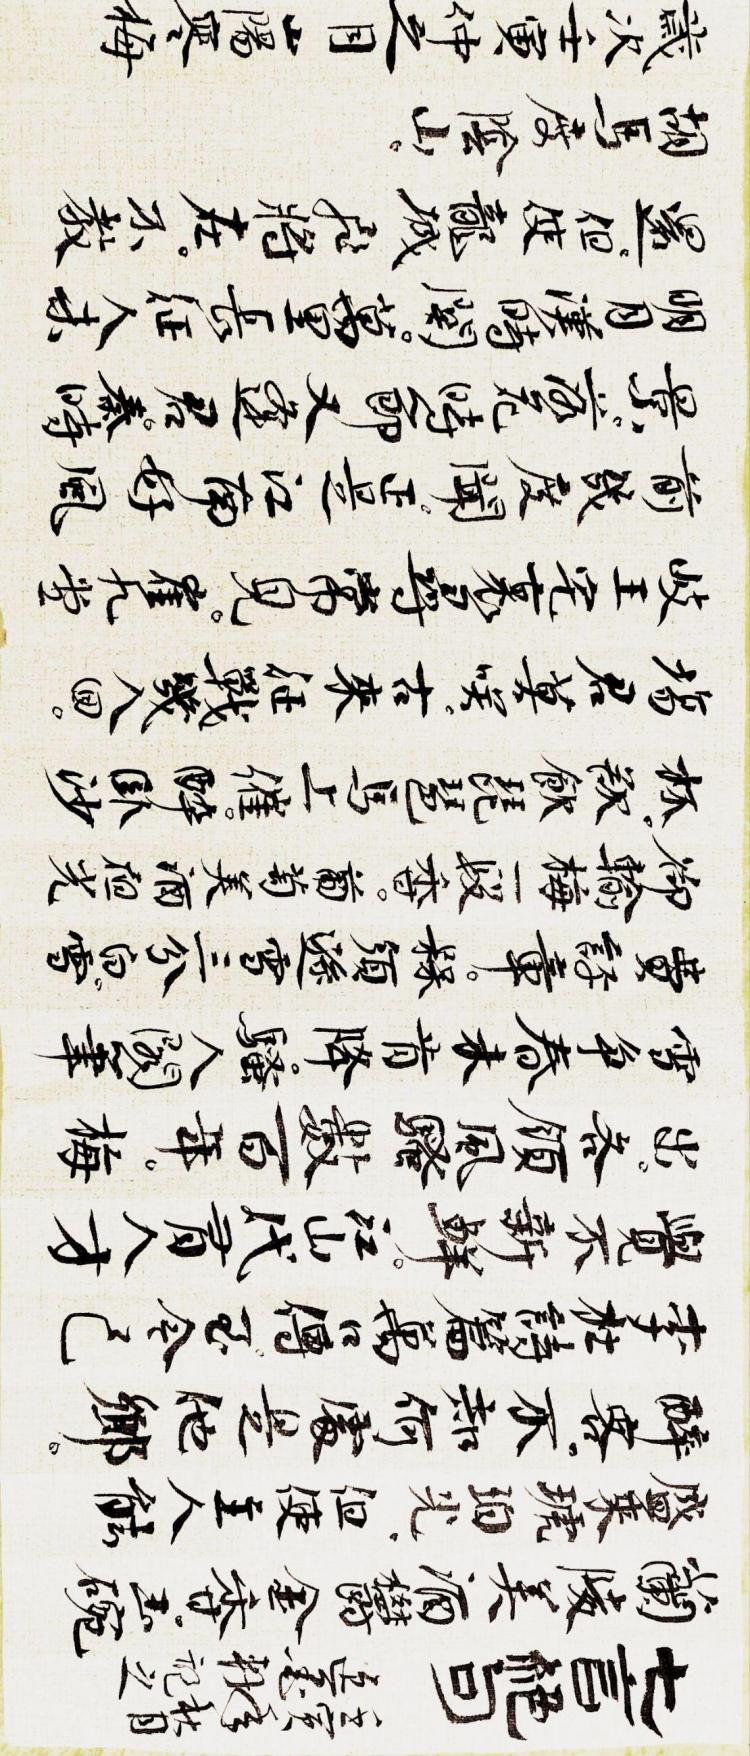 七言絕句
蘭陵美酒鬱金香。玉碗
盛來琥珀光。但使主人能
醉客。不知何處是他鄉。
李杜詩篇萬口傳。至今已
覺不新鮮。江山代有人才
出。各領風騷數百年。梅
雪爭春未肯降。騷人閣筆
費評章。梅須遜雪三分白。雪
卻輸梅一段香。葡萄美酒夜光
杯。欲飲琵琶馬上催。醉臥沙
場君莫笑。古來征戰幾人回。
岐王宅裏尋常見。崔九堂
前幾度聞。正是江南好風
景。落花時節又逢君。秦時
明月漢時關。萬里長征人未
還。但使龍城飛將在。不教
胡馬度陰山。
歲次壬寅仲夏月山陽寒梅